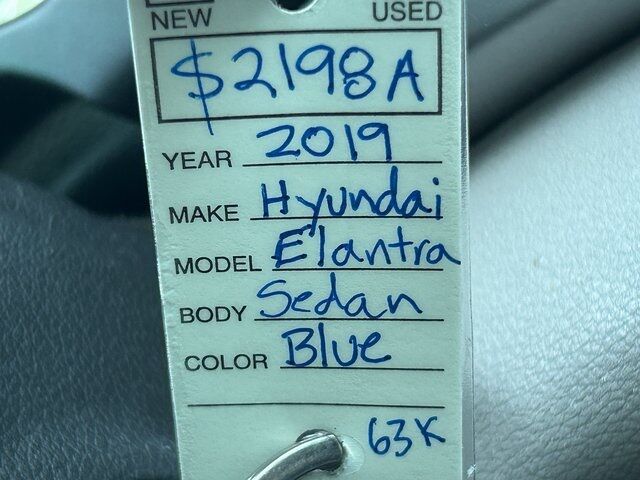 NEW USED
$2198A
YEAR 2019
MAKE Hyundai
MODEL Elantra
BODY Sedan
COLOR Blue
63K